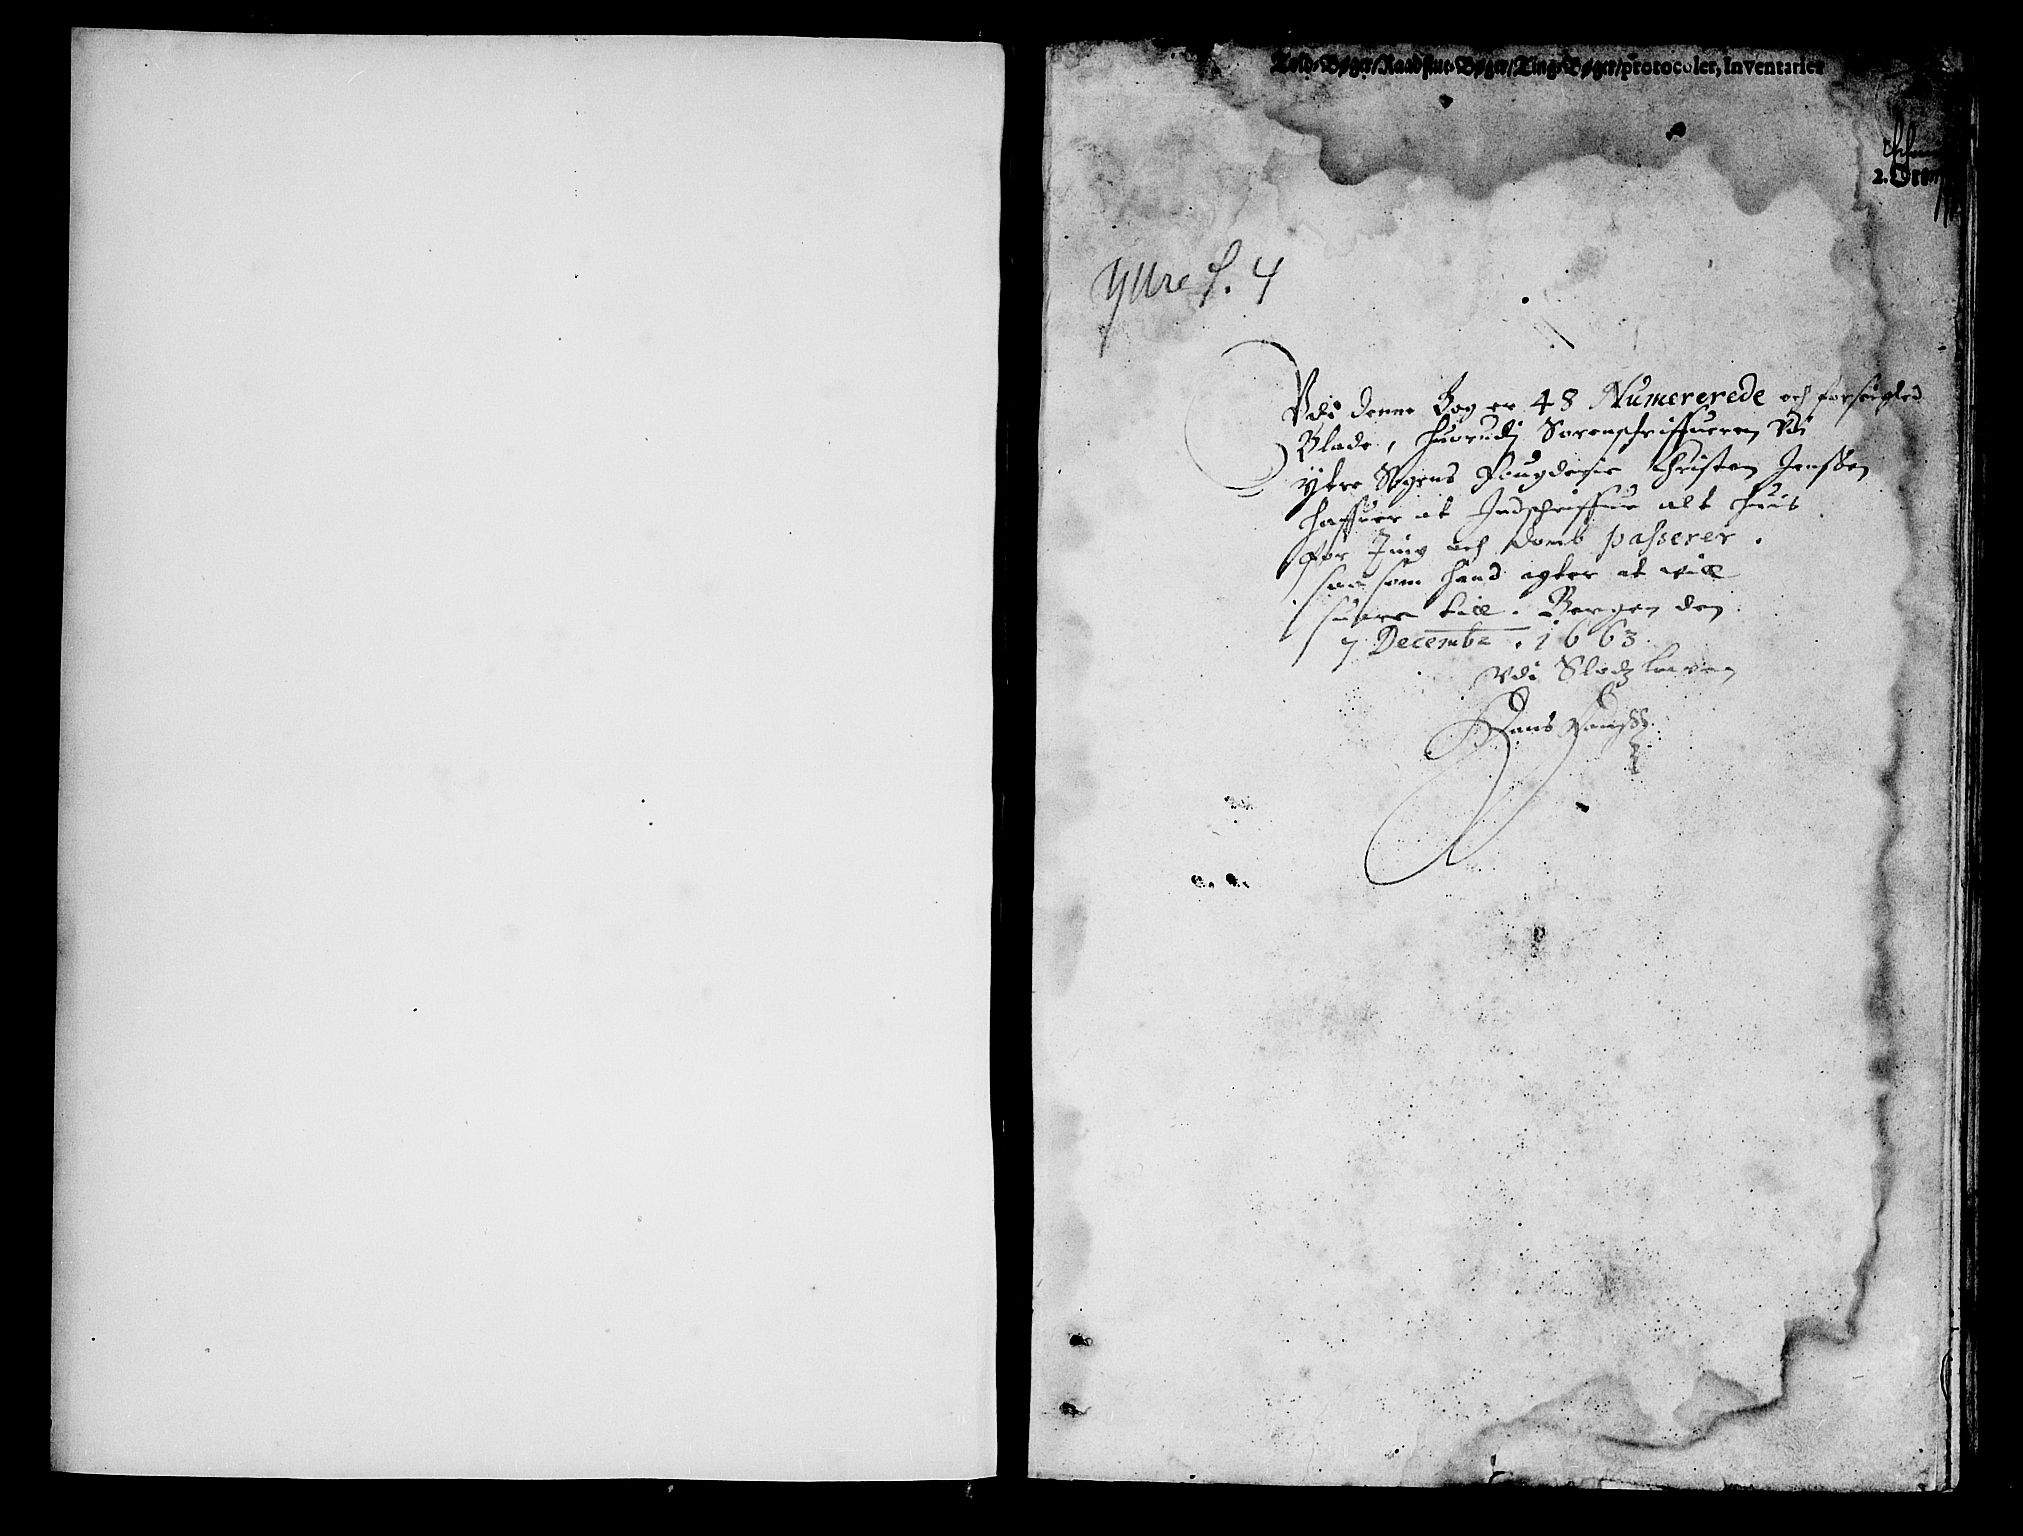 Told-Bøger/Raadstue-Bøger/Ting-Bøger/protocoler, Inventarier
2. Ort
Yttre S. 4
Vdi denne Bog er 48 Numererede och forseigled
Blade, huorudj Sorenschriffueren Vdi
Ytre Sogens Fougderie Christen Jenssen
haffuer at Indschriffue alt huis
for Ting och Domb passerer.
saa som hand agter at will
suare till. Bergen den
7 Decembr. 1663
Vdi Slodz louen
Hans